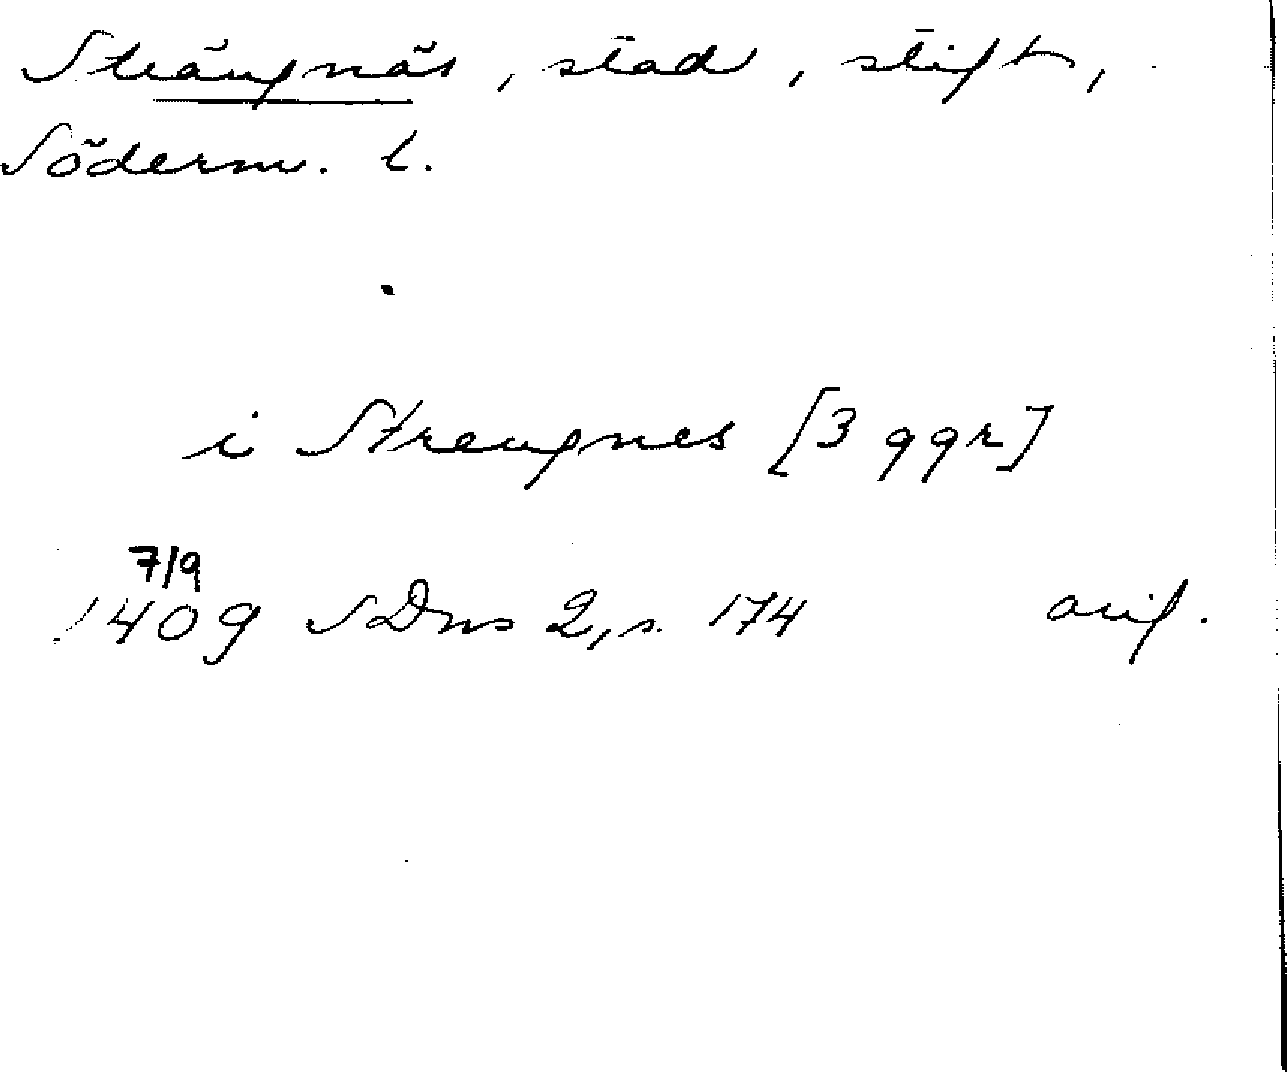 Strängnäs, stad, stift,
Söderm. l.
i Strengnes [3 ggr]
7/9
1409 SDns 2, s. 174 orig.